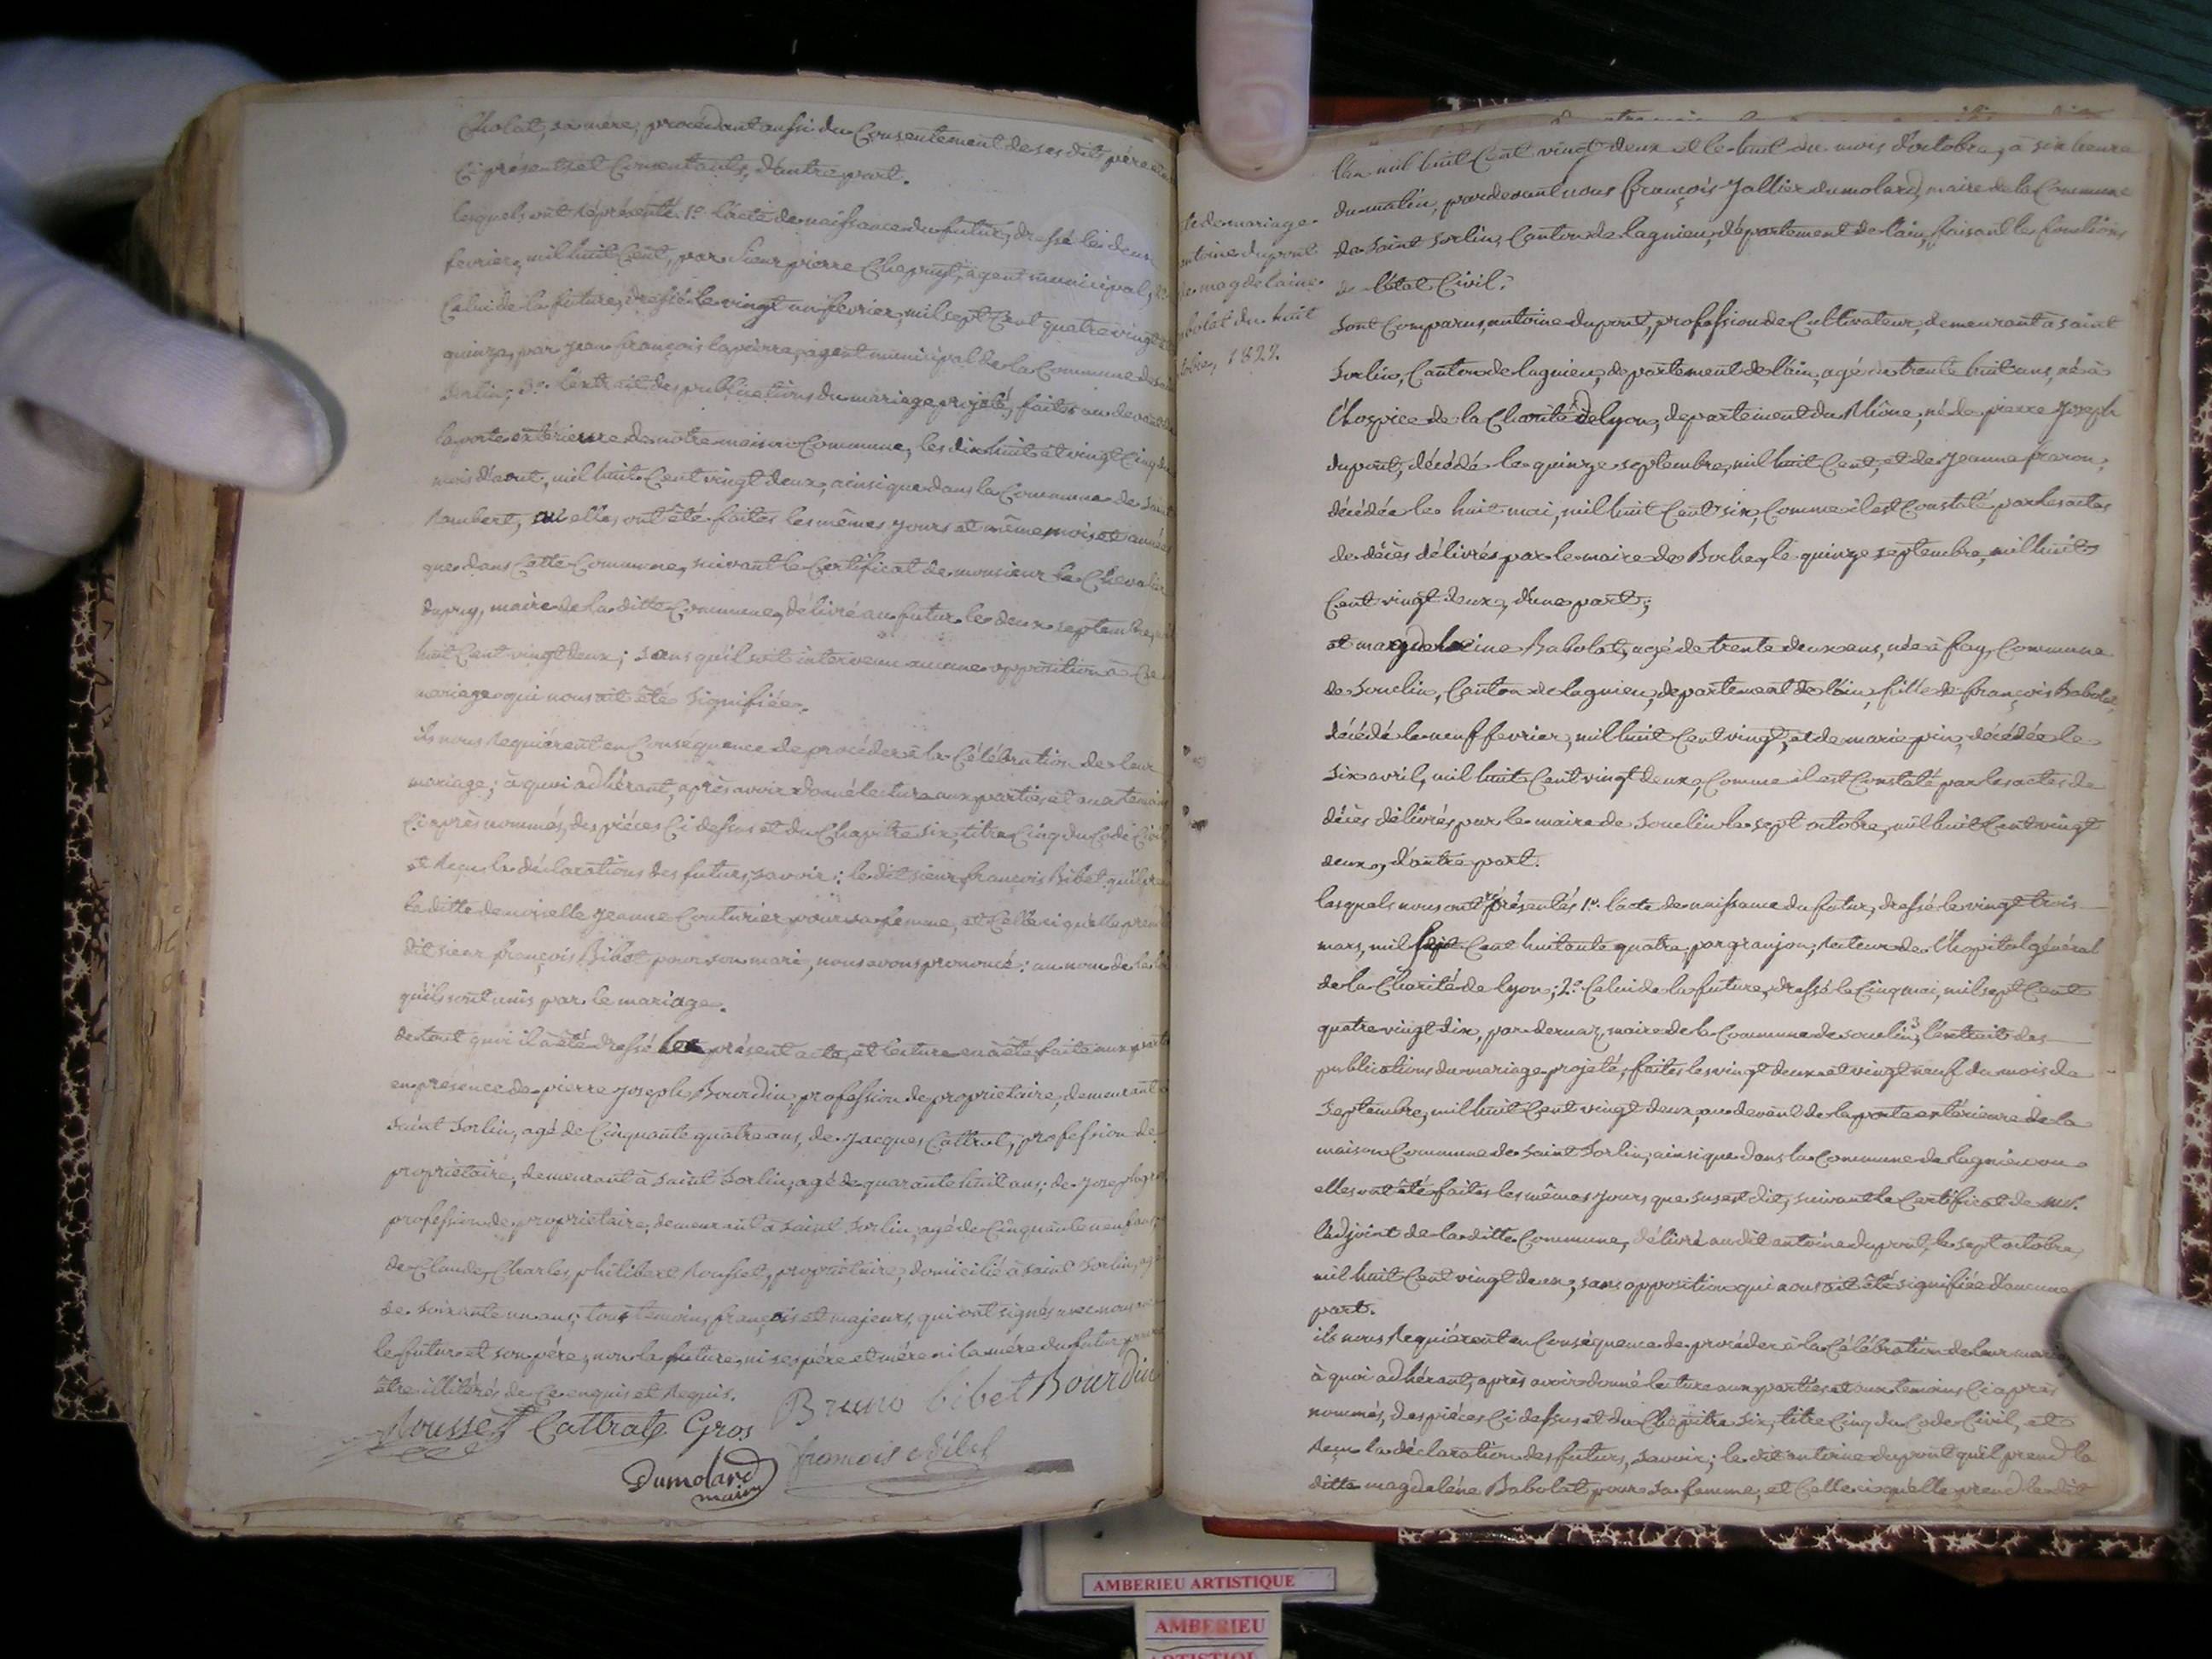 Cholat, sa mère, procédant aussi du Consentement de ses dits père et
Ci présents et Consentants, d'autre part.
lesquels ont représenté 1o. l'acte de naissance du futur, dressé le deux
fevrier, mil huit Cent, par sieur pierre Chapuyt, agent municipal,
Celui de la future, dressé le vingt un fevrier, mil sept Cent quatre vingt
quinze, par jean françois lapierre, agent municipal de la Commune de
Sorlin; 3o. l'extrait des publications du mariage projeté, faites au devant de
la porte extérieure de notre maison Commune, les dix huit et vingt Cinq du
mois d'aout, mil huit Cent vingt deux, ainsi que dans la Commune de Saint
Rambert, où elles ont été faites les mêmes jours et même mois et année
que dans Cette Commune, suivant le Certificat de monsieur le Chevalier
dupuy, maire de la ditte Commune, délivré au futur le deux septembre,
huit Cent vingt deux; sans qu'il soit intervenu aucune opposition à Ce
mariage qui nous ait été signifiée.
ils nous Requiérent en Conséquence de procéder à la Célébration de leur
mariage; à quoi adhérant, après avoir donné lecture aux parties et aux temoins
Ci après nommés, des piéces Ci dessus et du Chapitre six, titre Cinq du Code Civil,
et Reçu la déclarations des futurs, savoir: le dit sieur françois Bibet qu'il
la ditte demoiselle jeanne Couturier pour sa femme, et Celle ci qu'elle prend
dit sieur françois Bibet pour son mari, nous avons prononcé: au nom de la loi
qu'ils sont unis par le mariage.
de tout quoi il a été dressé le présent acte, et lecture en a été faite aux parties
en présence de pierre joseph Bourdin, profession de propriétaire, demeurant à
Saint Sorlin, agé de Cinquante quatre ans, de jacques Cattrat, profession de
propriétaire, demeurant à Saint Sorlin, agé de quarante huit ans; de joseph gros
profession de propriétaire, demeurant à Saint Sorlin, agé de Cinquante neuf ans;
de Claude Charles philibert Rousset, propriétaire, domicilié à Saint Sorlin, agé
de soixante un ans; tous temoins français et majeurs, qui ont signés avec nous
le futur et son pére, non la future, ni ses pére et mére ni la mére du futur pour
être illitérés de Ce enquis et Requis.
Rousset Cattrat Gros Bruno bibet Bourdin
Dumolard françois Bibet
maire
te de mariage
antoine dupont
de magdelaine
abolat du huit
tobre, 1822.
l'an mil huit Cent vingt deux et le huit du mois d'octobre, à six heure
du matin, pardevant nous françois Jallier dumolard, maire de la Commune
de Saint Sorlin, Canton de lagnieu, département de l'ain, faisant les fonctions
de l'état Civil;
Sont Comparus, antoine dupont, profession de Cultivateur, demeurant à Saint
Sorlin, Canton de lagnieu, departement de l'ain, agé de trente huit ans, né à
l'hospice de la Charité de lyon, departement du Rhône; né de pierre joseph
dupont, décédé le quinze septembre, mil huit Cent, et de jeanne fraron,
décédée le huit mai, mil huit Cent six, Comme il est Constaté par les actes
de décès délivrés par le maire de Roche, le quinze septembre, mil huit
Cent vingt deux, d'une part;
et magdeleine Babolat, agé de trente deux ans, née à flay, Commune
de Souclin, Canton de lagnieu, departement de l'ain, fille de françois Babolat,
décédé le neuf fevrier, mil huit Cent vingt, et de marie pin, décédée le
Six avril, mil huit Cent vingt deux, Comme il est Constaté par les actes de
décès délivrés par le maire de Souclin le sept octobre, mil huit Cent vingt
deux, d'autre part.
lesquels nous ont représentés 1o. l'acte de naissance du futur, dressé le vingt trois
mars, mil sept Cent huitante quatre, par granjon, Recteur de l'hopital général
de la Charité de lyon; 2o. Celui de la future, dressé le Cinq mai, mil sept Cent
quatre vingt dix, par dernaz, maire de la Commune de Souclin; 3 l'extrait des
publications du mariage projeté, faites les vingt deux et vingt neuf du mois de
Septembre, mil huit Cent vingt deux, au devant de la porte extérieure de la
maison Commune de Saint Sorlin, ainsi que dans la Commune de lagnieu ou
elles ont été faites les mêmes jours que sus est dit, suivant le Certificat de mr.
l'adjoint de la ditte Commune, délivré au dit antoine dupont, le sept octobre,
mil huit Cent vingt deux, sans opposition qui nous ait été signifiée d'aucune
part.
ils nous Requiérent en Conséquence de procéder à la Célébration de leur mariage
à quoi adhérant, après avoir donné lecture aux parties et aux temoins Ci après
nommés, des piéces Ci dessus et du Chapitre six, titre Cinq du Code Civil, et
Reçu la déclaration des futurs, savoir; le dit antoine dupont qu'il prend la
ditte magdeléne Babolat pour sa femme, et Celle ci qu'elle prend le dit
AMBERIEU ARTISTIQUE
AMBERIEU
ARTISTIQUE